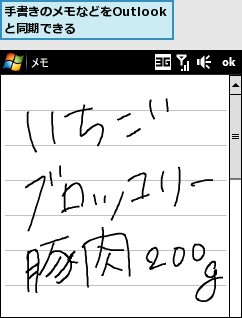 手書きのメモなどをOutlook
と同期できる
メモ 3G ok
いちご
ブロッコリー
豚肉200g